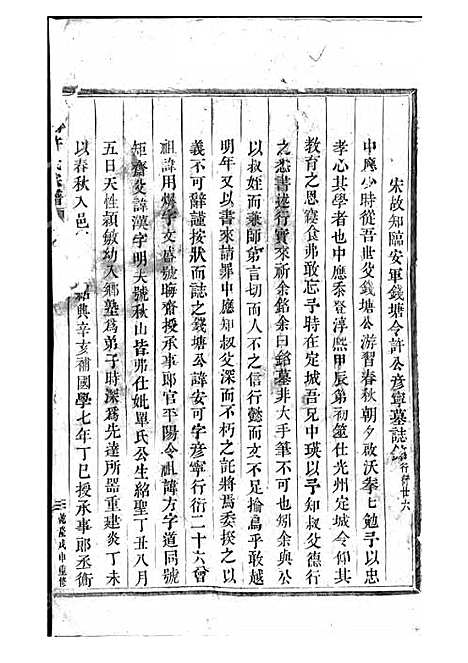 宋故知臨安軍錢塘令許公彥寧墓誌銘行衍廿六
中應少時從吾世父錢塘公游習春秋朝夕啟沃奉七勉予以忠
孝心其學者也中應忝登淳熙甲辰第初筮仕光州定城令仰其
教育之恩寢食弗敢忘予時在定城吾兄中瑛以予知叔父德行
之悉書遂行實來祈余銘余曰銘墓非大手筆不可矧余與公
以叔姪而兼師弟言切而人不之信行懿而文不足掄烏乎敢越
明年又以書來請罪中應知叔父深而不朽之託將焉委揆之以
義不可辭謹按狀而誌之錢塘公諱安可字彥寧行衍二十六曾
祖諱用爆字文盛號晦齋授承事郎官平陽令祖諱方字道同號
矩齋父諱漢字明夫號秋山皆弗仕妣單氏公生紹聖丁丑八月
五日天性穎敏幼入鄉塾為弟子時深為先達所器重建炎丁未
以春秋入邑 紹興辛亥補國學七年丁巳授承事郎丞衡
許氏宗譜
三 乾隆戊申重修